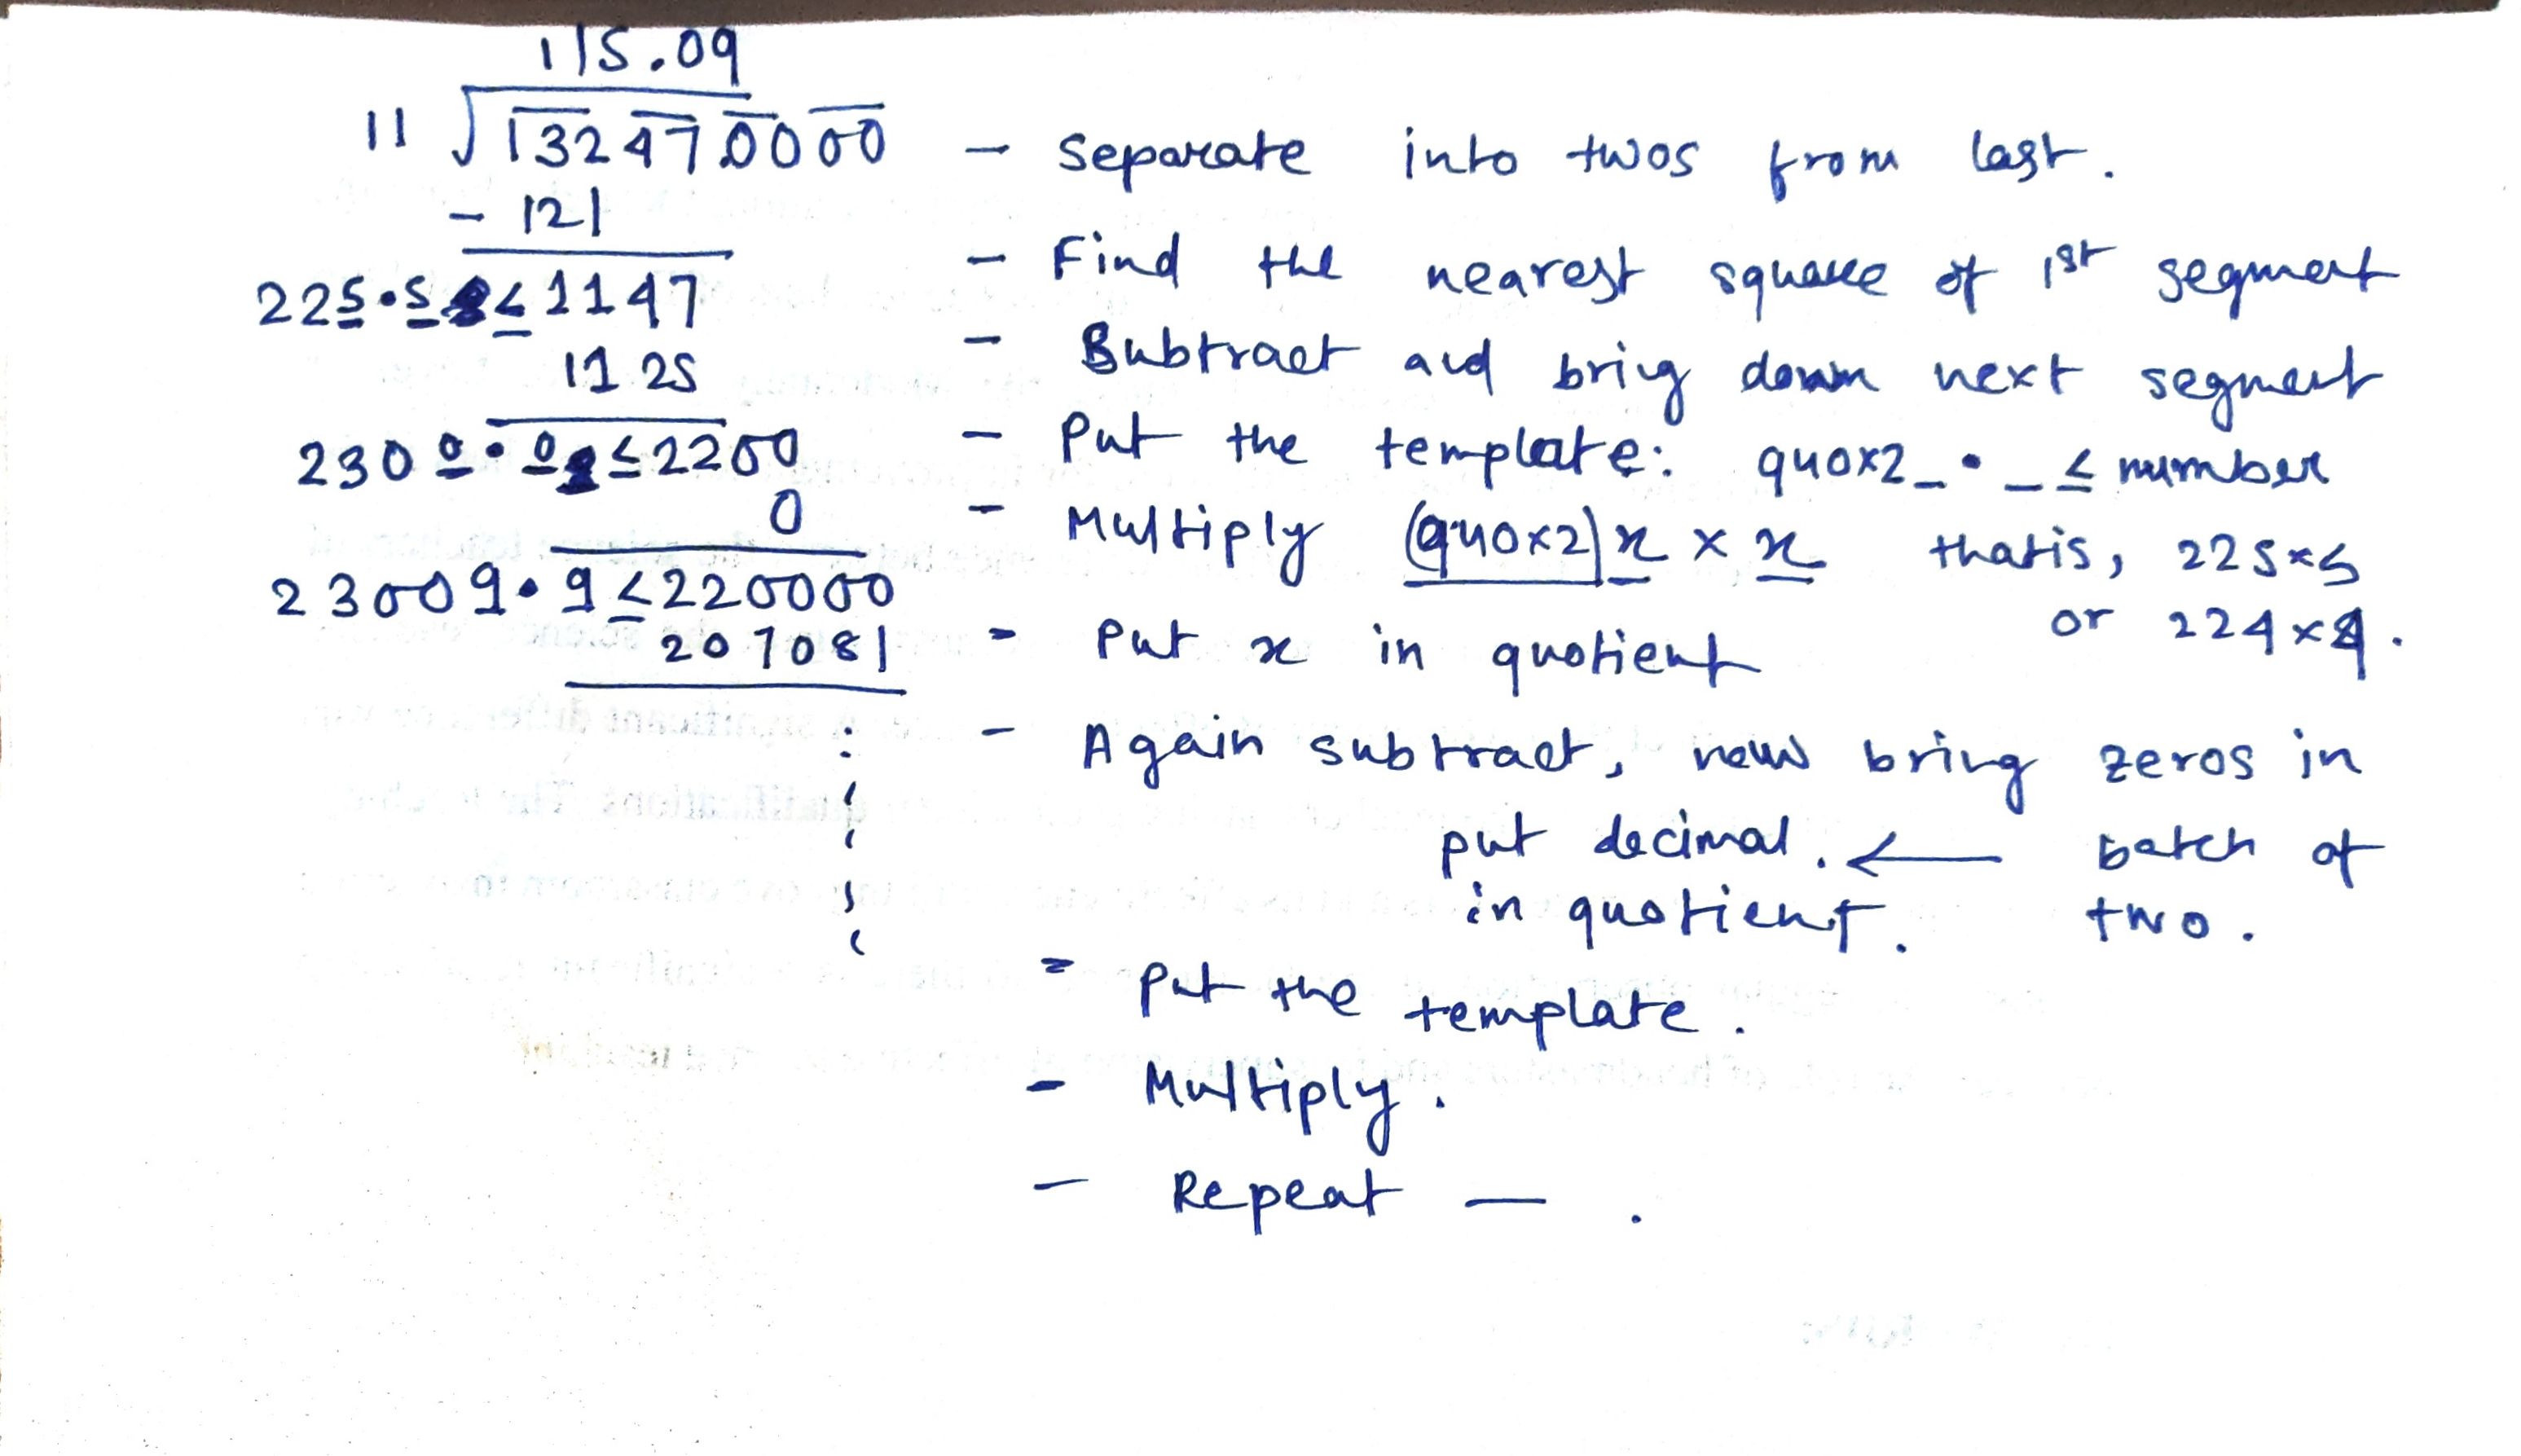 115.09
11 √132 47.00 00
- 121
225.5 ≤ 1147
1125
2300.0 ≤ 2200
0
23009.9 ≤ 220000
207081
- Separate into twos from last.
- Find the nearest square of 1st segment
- Subtract and bring down next segment
- Put the template: quox2_•_ ≤ number
- Multiply (quox2)x × x thatis, 225×5
or 224×4.
- Put x in quotient
- Again subtract, now bring zeros in
put decimal. ← batch of
in quotient. two.
- Put the template.
- Multiply.
- Repeat — .